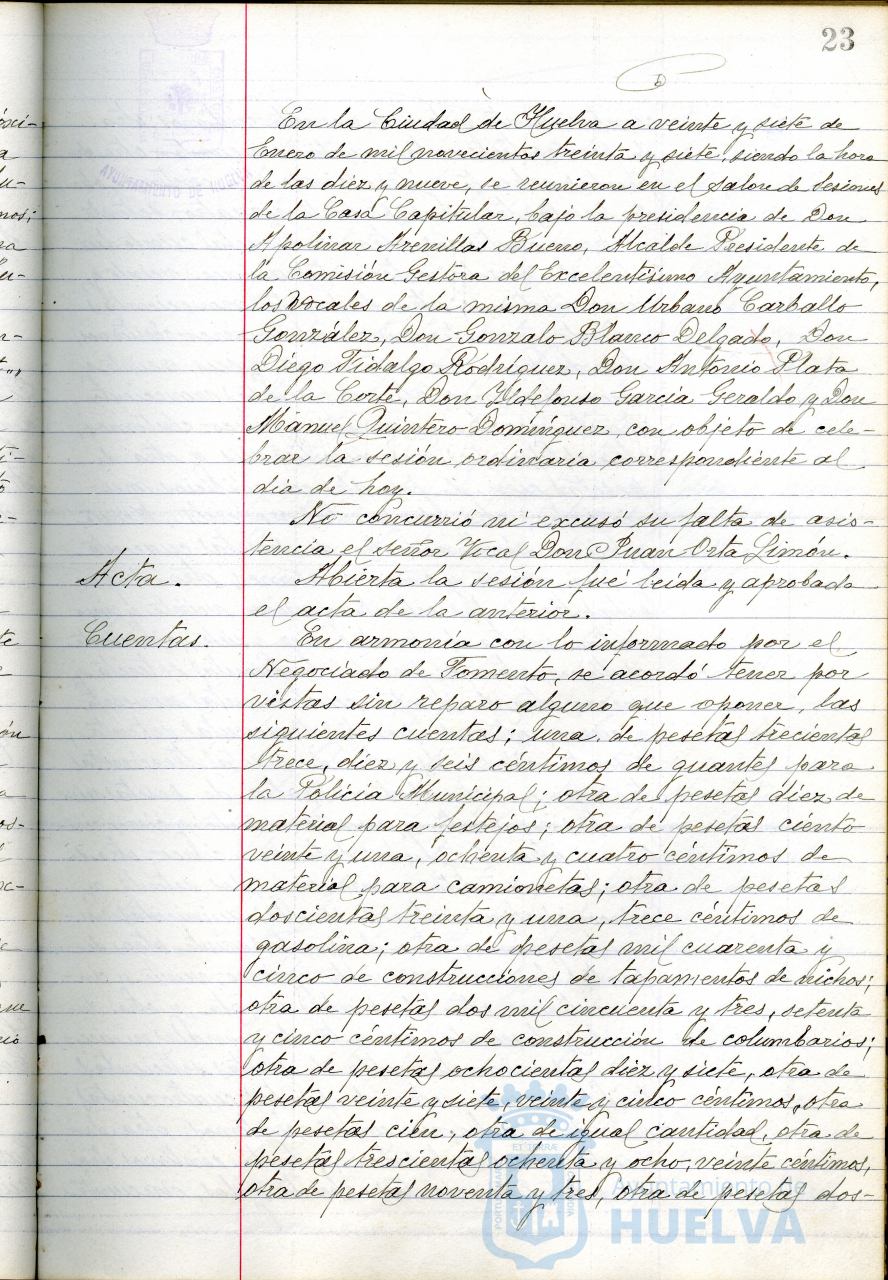 23
En la Ciudad de Huelva a veinte y siete de
Enero de mil novecientos treinta y siete, siendo la hora
de las diez y nueve, se reunieron en el salon de sesiones
de la Casa Capitular, bajo la presidencia de Don
Apolinar Arenillas Bueno, Alcalde Presidente de
la Comisión Gestora del Excelentísimo Ayuntamiento,
los vocales de la misma Don Urbano Carballo
González, Don Gonzalo Blanco Delgado, Don
Diego Fidalgo Rodríguez, Don Antonio Plata
de la Corte, Don Ildefonso García Geraldo y Don
Manuel Quintero Domínguez, con objeto de cele-
brar la sesión ordinaria correspondiente al
día de hoy.
No concurrió ni excusó su falta de asis-
tencia el señor Vocal Don Juan Orta Limón.
Acta. Abierta la sesión fué leida y aprobada
el acta de la anterior.
Cuentas. En armonía con lo informado por el
Negociado de Fomento, se acordó tener por
vistas sin reparo alguno que oponer, las
siguientes cuentas; una de pesetas trecientas
trece, diez y seis céntimos de guantes para
la Policía Municipal; otra de pesetas diez de
material para festejos; otra de pesetas ciento
veinte y una, ochenta y cuatro céntimos de
material para camionetas; otra de pesetas
doscientas treinta y una, trece céntimos de
gasolina; otra de pesetas mil cuarenta y
cinco de construcciones de tapamentos de nichos;
otra de pesetas dos mil cincuenta y tres, setenta
y cinco céntimos de construcción de columbarios;
otra de pesetas ochocientas diez y siete, otra de
pesetas veinte y siete, veinte y cinco céntimos, otra
de pesetas cien, otra de igual cantidad, otra de
pesetas trescientas ochenta y ocho, veinte céntimos,
otra de pesetas noventa y tres, otra de pesetas dos-
Ayuntamiento de
HUELVA